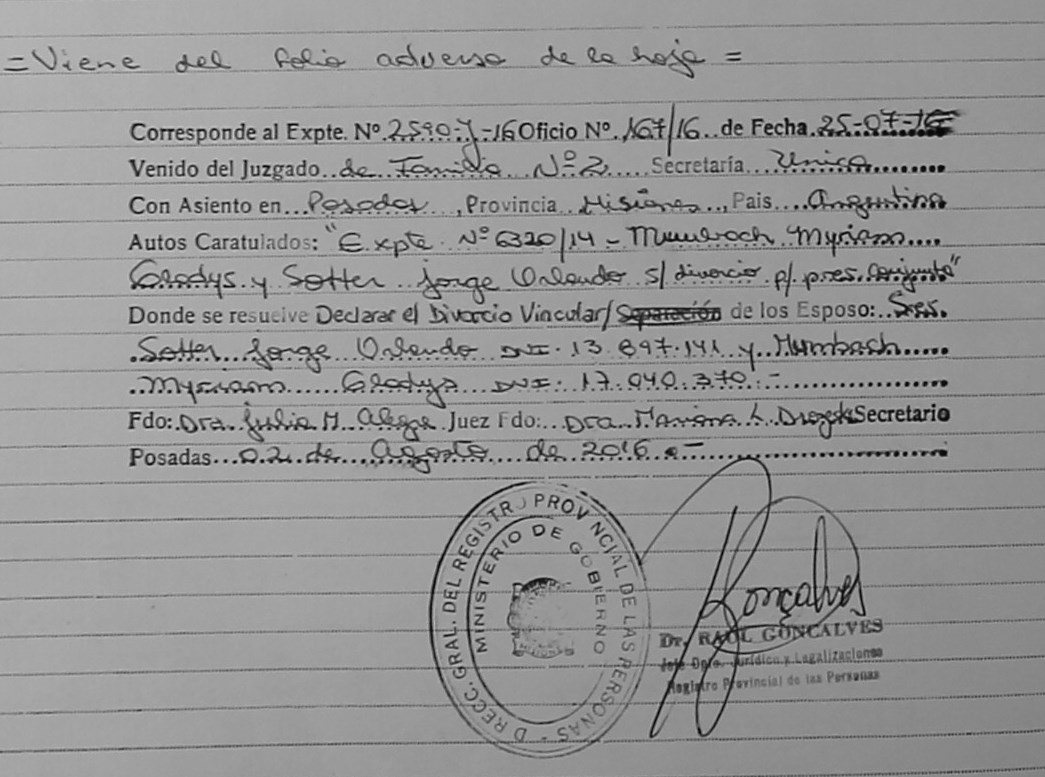 = Viene del folio adverso de la hoja =
Corresponde al Expte. Nº 2590-J-16 Oficio Nº 167/16 de Fecha 25-07-16
Venido del Juzgado de Familia Nº 2 Secretaría Unica
Con Asiento en Posadas, Provincia Misiones, Pais Argentina
Autos Caratulados: "Expte Nº 6320/14 - Myriam
Gladys y Sotter Jorge Orlando s/ divorcio p/ pres. conjunta"
Donde se resuelve Declarar el Divorcio Vincular/Separación de los Esposo: Sres.
Sotter Jorge Orlando DNI. 13.897.141 y Mumbach
Myriam Gladys DNI: 17.040.370.-
Fdo: Dra. Julia M. Alegre Juez Fdo: Dra. Mariana L. Secretario
Posadas 02 de Agosto de 2016.-
DIRECC. GRAL. DEL REGISTRO PROVINCIAL DE LAS PERSONAS -
MINISTERIO DE GOBIERNO
Gonçalves
Dr. RAUL GONCALVES
Jefe Dpto. Jurídico y Legalizaciones
Registro Provincial de las Personas